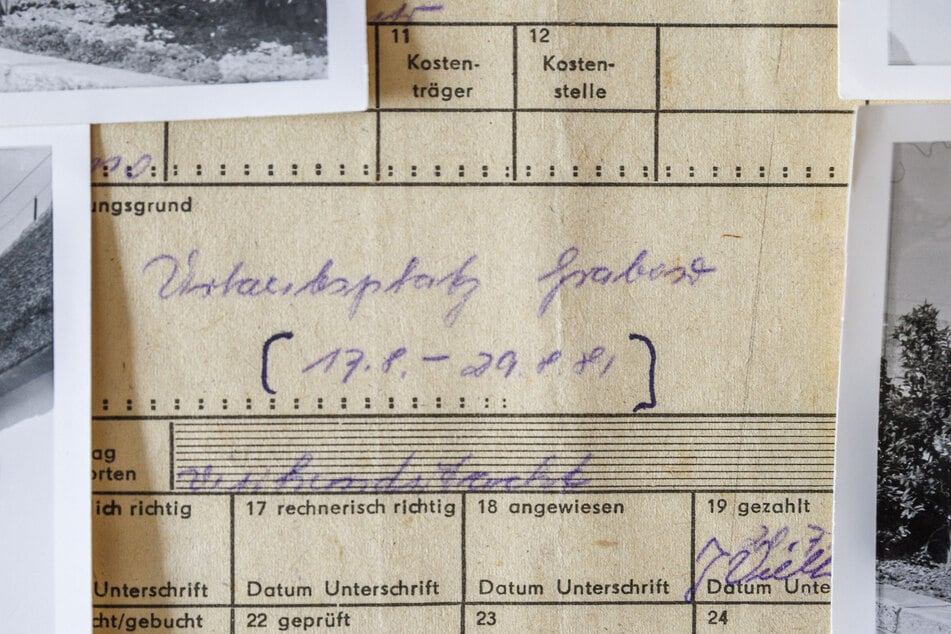 11 12
Kosten- Kosten-
träger stelle
ungsgrund
Urlaubsplatz Grabow
(17.8. - 29.8.81)
ag
orten
ich richtig 17 rechnerisch richtig 18 angewiesen 19 gezahlt
Unterschrift Datum Unterschrift Datum Unterschrift Datum Unte
cht/gebucht 22 geprüft 23 24